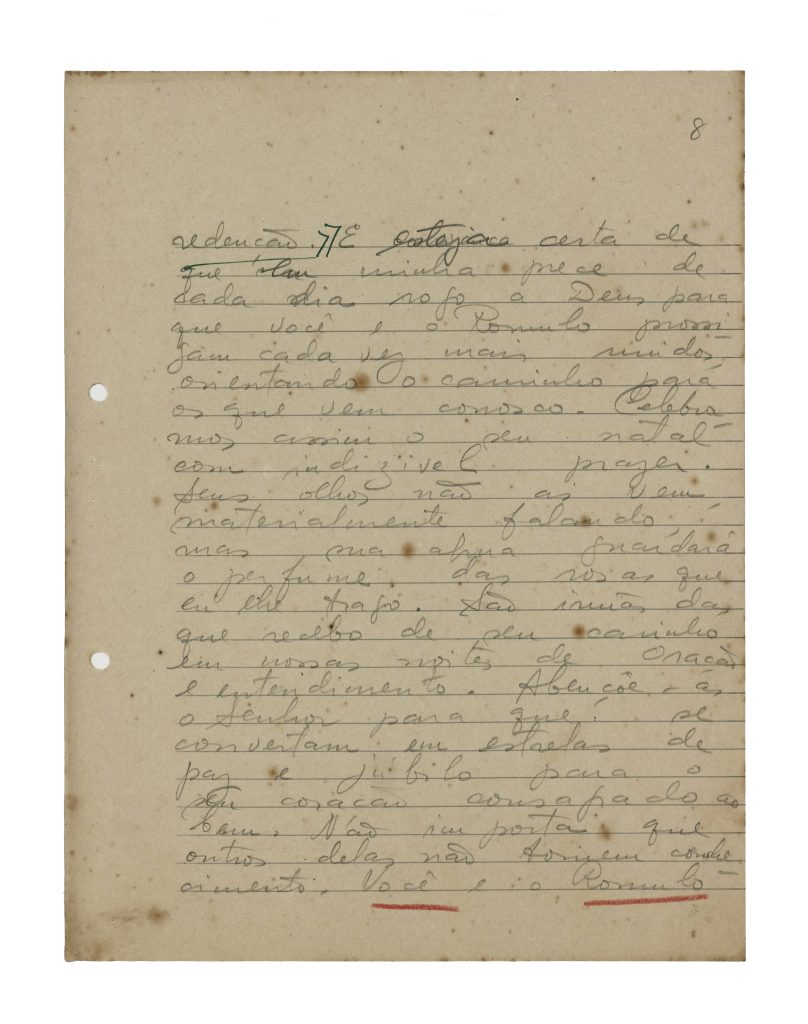 8
redenção. E esteja certa de
que em minha prece de
cada dia rogo a Deus para
que você e o Romulo prossi
gam cada vez mais unidos
orientando o caminho para
os que vem conosco. Celebra
mos assim o seu natal
com indizivel prazer.
Seus olhos não as vem,
materialmente falando,
mas sua alma guardará
o perfume das rosas que
eu lhe trago. São irmãs das
que recebo de seu carinho
em nossas noites de Oração
e entendimento. Abençõe-as
o Senhor para que se
convertam em estrelas de
paz e júbilo para o
seu coração consagrado ao
bem. Não importa que
outros delas não tomem conhe
cimento. Você e o Romulo